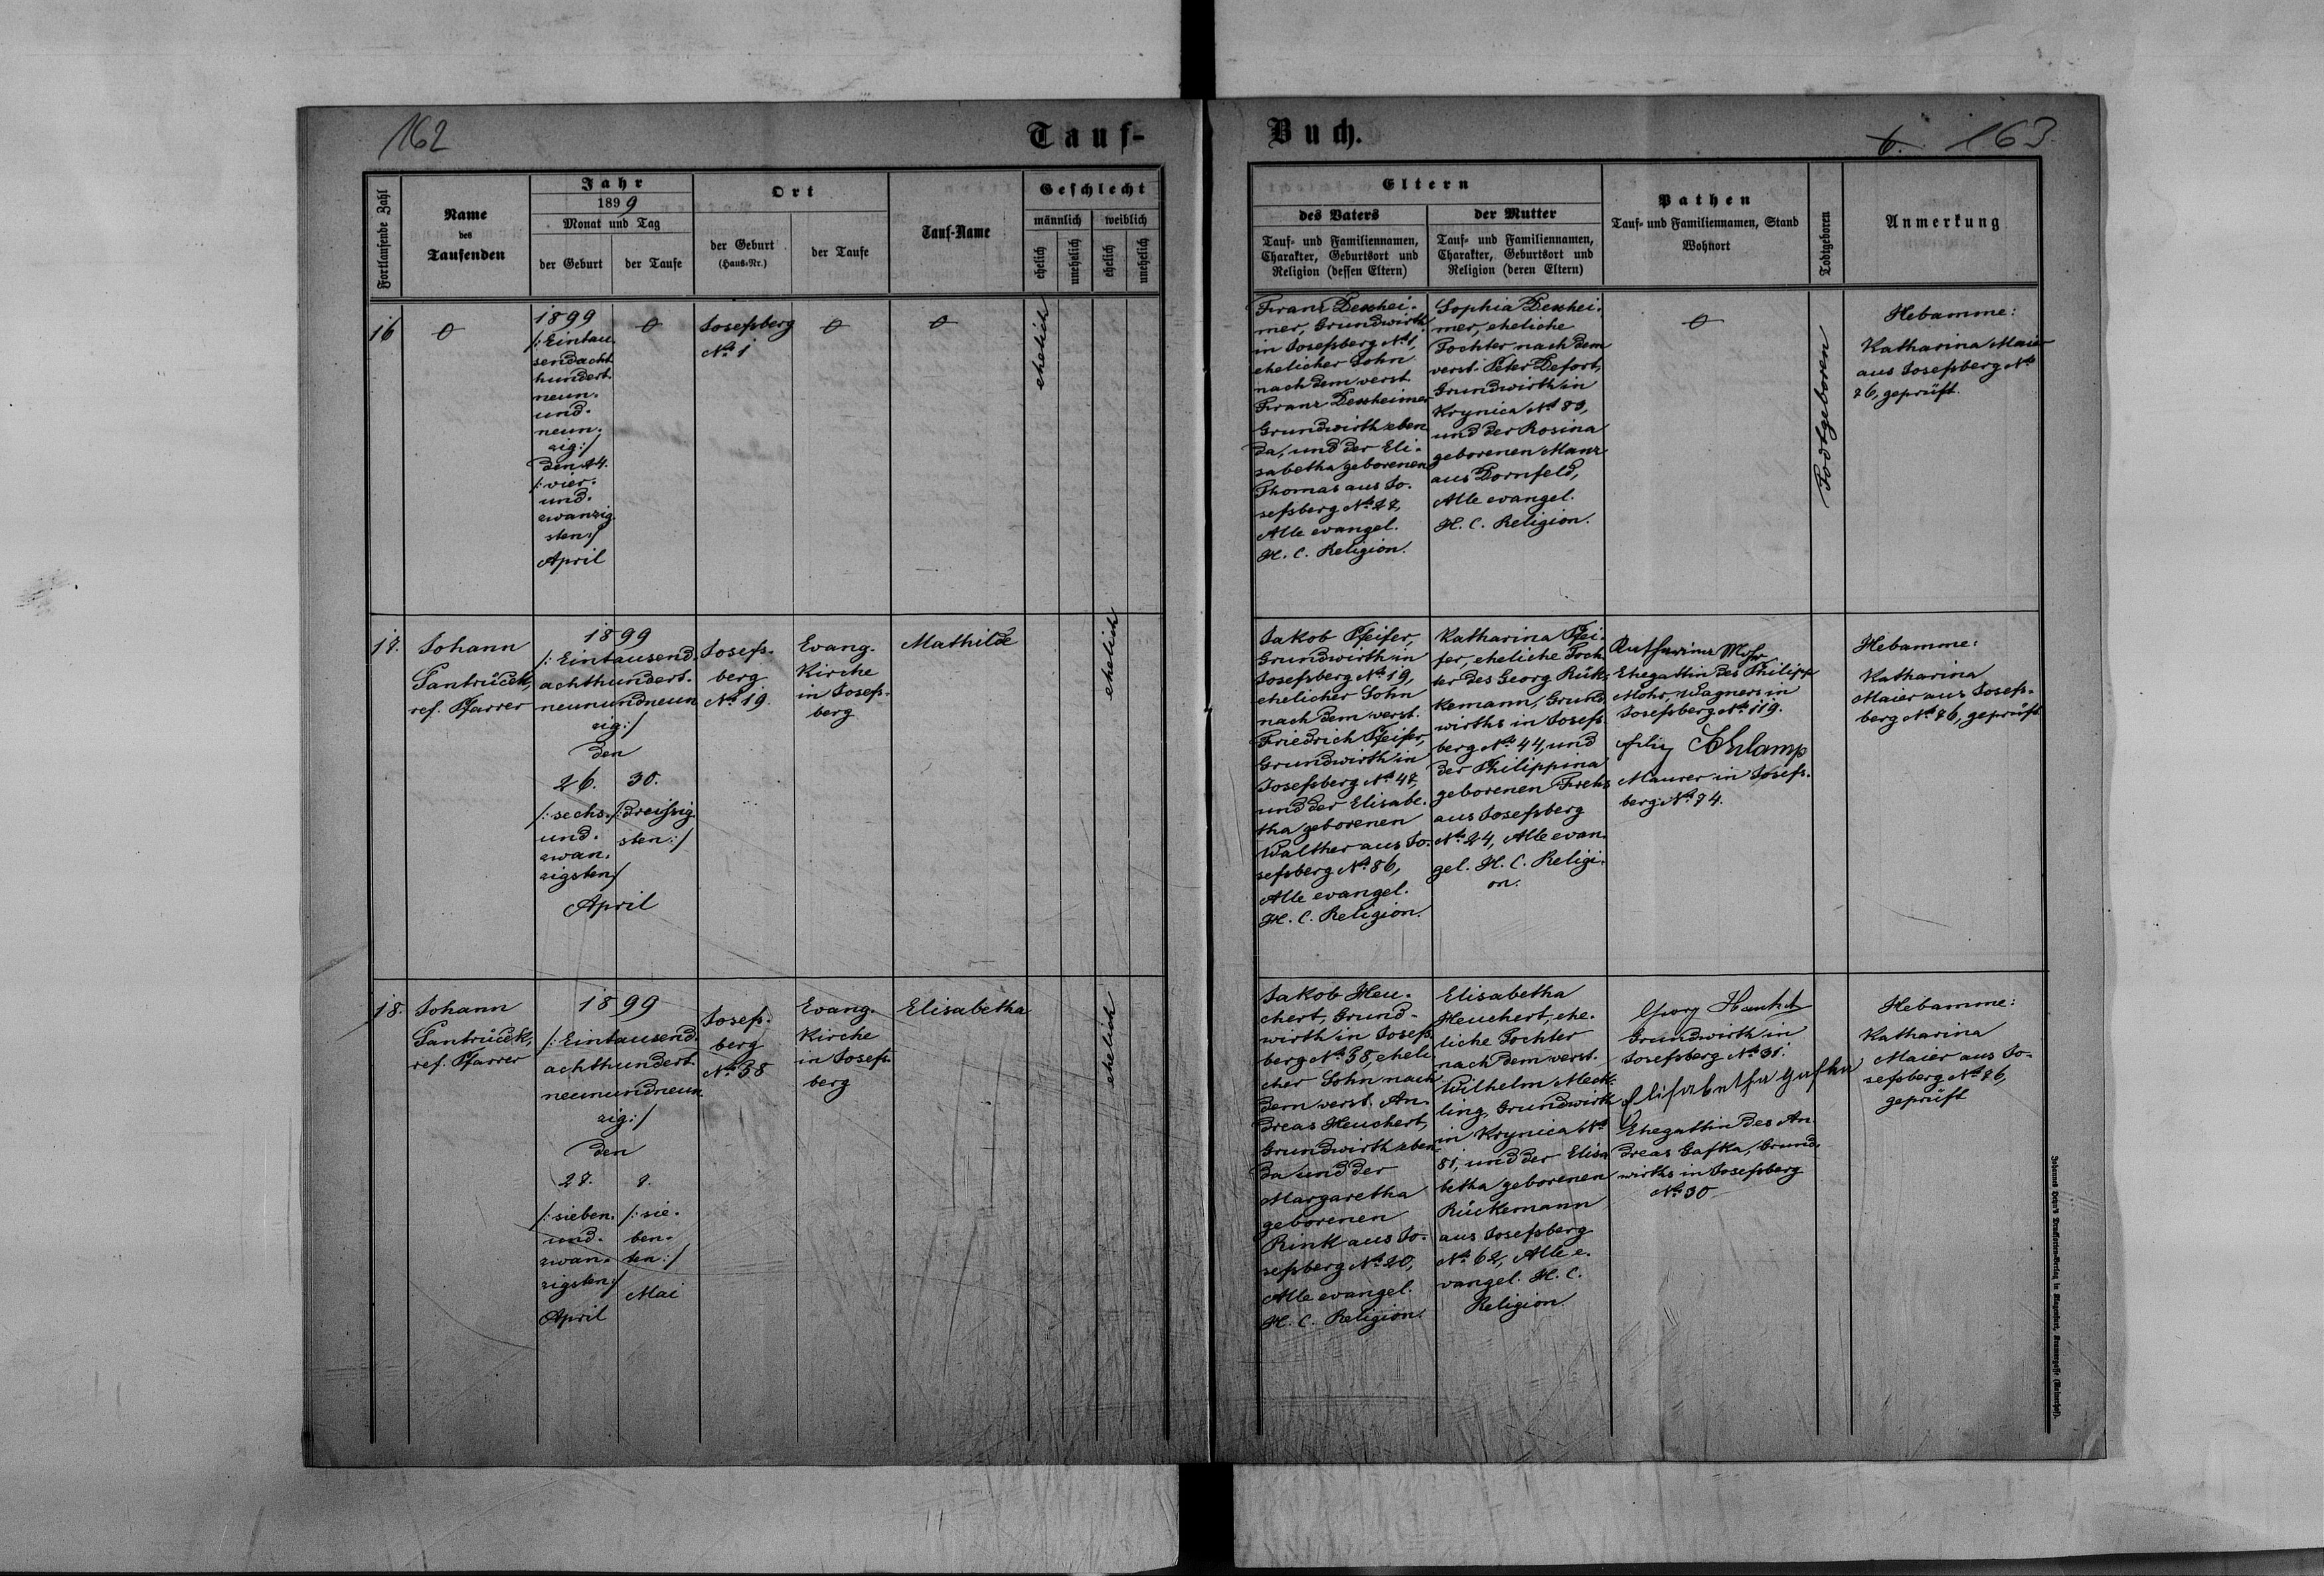 162
Tauf-
Fortlaufende Zahl
Name
des
Taufenden
Jahr
1899
Monat und Tag
der Geburt
der Taufe
Ort
der Geburt
(Haus-Nr.)
der Taufe
Tauf-Name
Geschlecht
männlich
weiblich
ehelich
unehelich
ehelich
unehelich
16
1899
/: Eintau-
sendacht-
hundert-
neun-
und-
neun-
zig :/
den 24.
/: vier-
und-
zwanzig-
sten :/
April
Josefsberg
No 1
ehelich
17.
Johann
Jantrůček,
ref. Pfarrer
1899
/: Eintausend-
achthundert-
neunundneun
zig :/
den
26.
30.
/: sechs-
und-
zwan-
zigsten :/
/: dreißig-
sten :/
April
Josefs-
berg
No 19.
Evang.
Kirche
in Josefs-
berg
Mathilde
ehelich
18.
Johann
Jantrůček,
ref. Pfarrer
1899
/: Eintausend-
achthundert-
neunundneun-
zig :/
den
27.
7.
/: sieben-
und-
zwan-
zigsten :/
April
/: sie-
ben-
ten :/
Mai
Josefs-
berg
No 58
Evang.
Kirche
in Josefs-
berg
Elisabetha
ehelich
Buch.
163
Eltern
des Vaters
Tauf- und Familiennamen,
Charakter, Geburtsort und
Religion (dessen Eltern)
der Mutter
Tauf- und Familiennamen,
Charakter, Geburtsort und
Religion (deren Eltern)
Pathen
Tauf- und Familiennamen, Stand
Wohnort
Todtgeboren
Anmerkung
Franz Dexhei-
mer, Grundwirth
in Josefsberg No 1,
ehelicher Sohn
nach dem verst.
Franz Dexheimer
Grundwirth eben
da, und der Eli-
sabetha geborenen
Thomas aus Jo-
sefsberg No 27,
Alle evangel.
H. C. Religion.
Sophia Dexhei-
mer, eheliche
Tochter nach dem
verst. Peter Defort,
Grundwirth in
Krynica No 83,
und der Rosina
geborenen Manz
aus Dornfeld,
Alle evangel.
H. C. Religion.
Todtgeboren
Hebamme:
Katharina Maier
aus Josefsberg No
76, geprüft.
Jakob Pfeifer,
Grundwirth in
Josefsberg No 19,
ehelicher Sohn
nach dem verst.
Friedrich Pfeifer,
Grundwirth in
Josefsberg No 47,
und der Elisabe-
tha geborenen
Walther aus Jo-
sefsberg No 86,
Alle evangel.
H. C. Religion.
Katharina Pfei-
fer, eheliche Toch-
ter des Georg Rük-
kemann, Grund-
wirths in Josefs-
berg No 44, und
der Philippina
geborenen Frehs
aus Josefsberg
No 24, Alle evan-
gel. H. C. Religi-
on.
Katharina Mohr
Ehegattin des Philipp
Mohr Wagners in
Josefsberg No 119.
Maurer in Josefs-
berg No 74.
Hebamme:
Katharina
Maier aus Josefs-
berg No 76, geprüft
Jakob Heu-
chert, Grund-
wirth in Josefs-
berg No 58, eheli-
cher Sohn nach
dem verst. An-
dreas Heuchert,
Grundwirth eben
da und der
Margaretha
geborenen
Rink aus Jo-
sefsberg No 20,
Alle evangel.
H. C. Religion.
Elisabetha
Heuchert, ehe-
liche Tochter
nach dem verst.
Wilhelm Meck-
ling Grundwirth
in Krynica No
81, und der Elisa
betha geborenen
Rückemann
aus Josefsberg
No 62, Alle e-
vangel. H. C.
Religion.
Georg Heuchert
Grundwirth in
Josefsberg No 31.
Elisabetha Gafka
Ehegattin des An-
dreas Gafka, Grund-
wirths in Josefsberg
No 30
Hebamme:
Katharina
Maier aus Jo-
sefsberg No 76,
geprüft